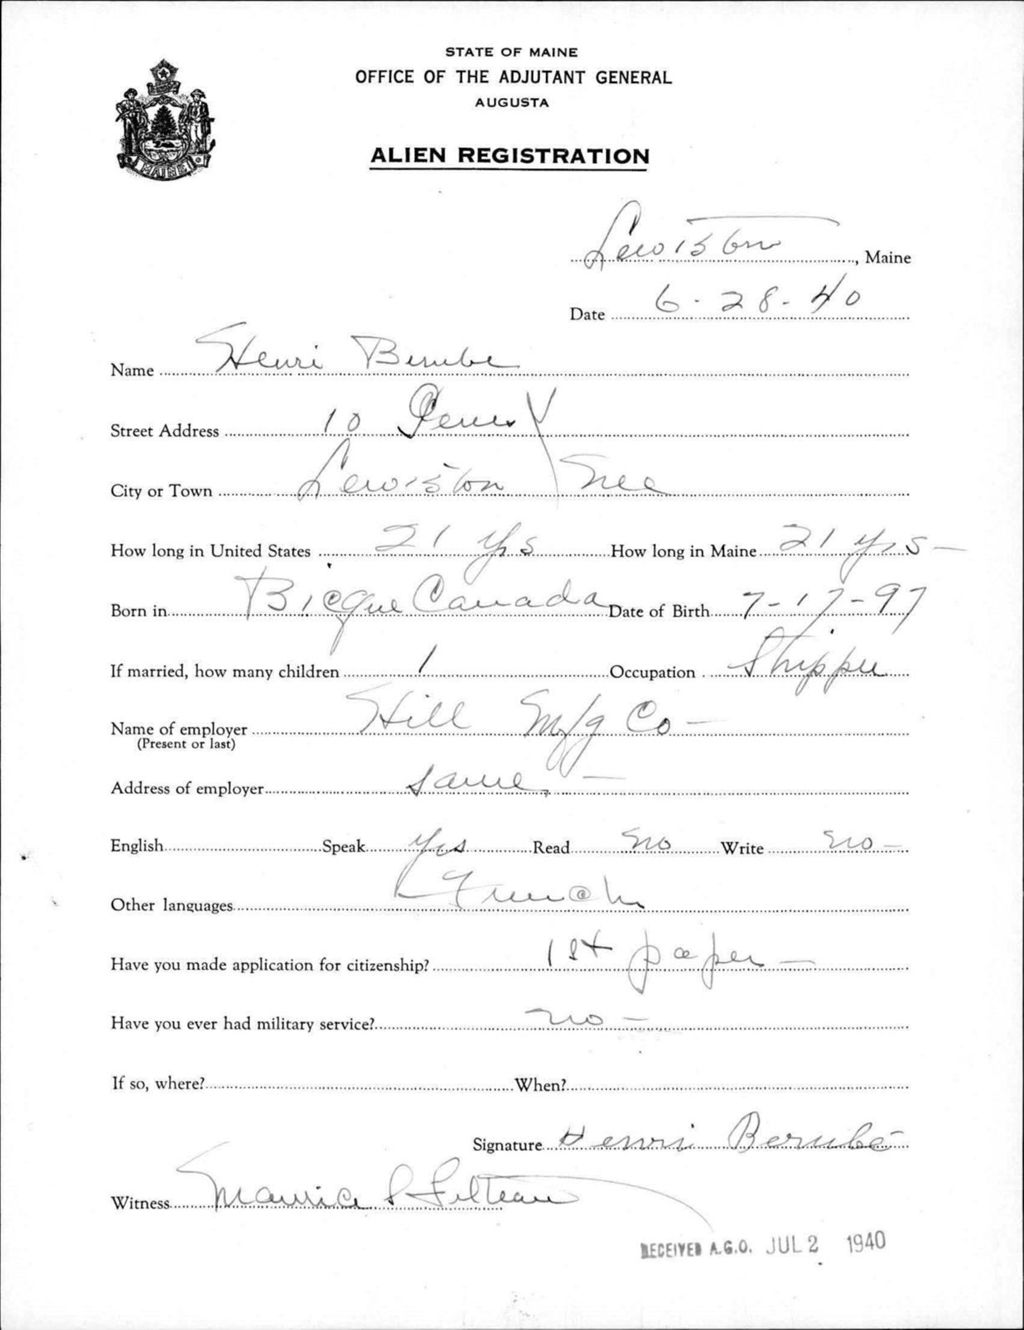 STATE OF MAINE
OFFICE OF THE ADJUTANT GENERAL
AUGUSTA
ALIEN REGISTRATION
MAINE
Lewiston, Maine
Date 6-28-40
Name Henri Berube
Street Address 10 Percy
City or Town Lewiston Me
How long in United States 21 yrs How long in Maine 21 yrs-
Born in Bicque Canada Date of Birth 7-17-97
If married, how many children 1 Occupation Shipper
Name of employer Hill Mfg Co-
(Present or last)
Address of employer same-
English Speak yes Read no Write no-
Other languages French
Have you made application for citizenship? 1st paper-
Have you ever had military service? no-
If so, where? When?
Signature Henri Berubé
Witness Maurice Filteau
RECEIVED A.G.O. JUL 2 1940